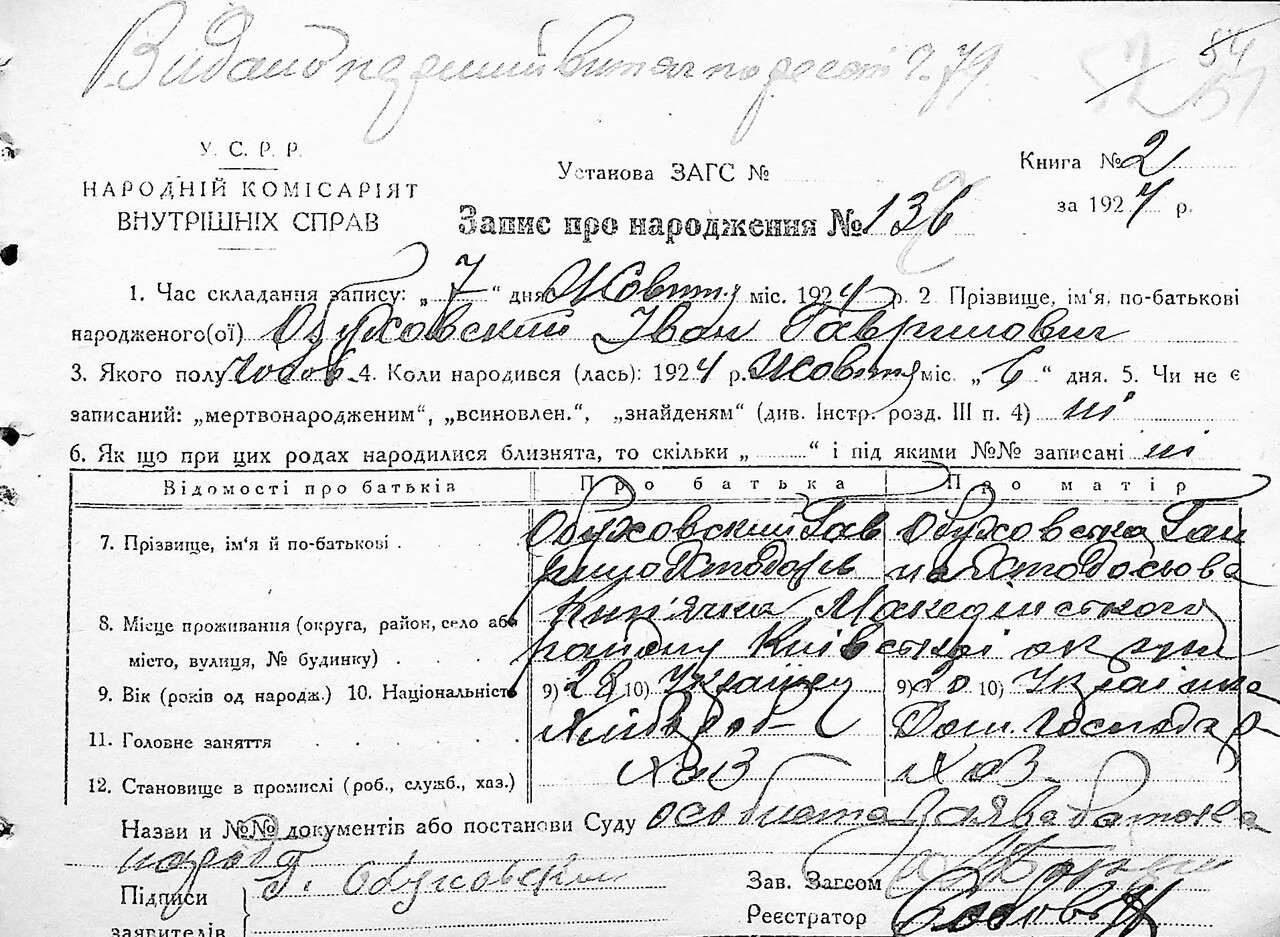 Видано первший витяг по реєст. 2. 79
54
У. С. Р. Р.
НАРОДНІЙ КОМІСАРІЯТ
ВНУТРІШНІХ СПРАВ
Установа ЗАГС №
Книга № 2
за 1924 р.
Запис про народження № 136
1. Час складання запису: „7“ дня Жовтня міс. 1924 р. 2 Прізвище, ім'я, по-батькові
народженого(ої) Обуховский Іван Гаврилович
3. Якого полу чолов. 4. Коли народився (лась): 1924 р. Жовтня міс. „6“ дня. 5. Чи не є
записаний: „мертвонародженим“, „всиновлен.“, „знайденям“ (див. Інстр. розд. III п. 4) ні
6. Як що при цих родах народилися близнята, то скільки „ “ і під якими №№ записані ні
Відомості про батьків Про батька Про матір
7. Прізвище, ім'я й по-батькові Обуховский Гав Обуховська Ган
на Хтодосьова
8. Місце проживання (округа, район, село або
місто, вулиця, № будинку)
Кип'ячка Македінського
району Київської округи
9. Вік (років од народж.) 10. Національність 9) 28 10) Українец 9) 20 10) Українка
11. Головне заняття Хлібороб Дом. Господар
12. Становище в промислі (роб., служб., хаз.) Хаз Хаз.
Назви и №№ документів або постанови Суду особиста Заява батька
Підписи
заявителів
Г. Обуховский
Зав. Загсом
Реєстратор